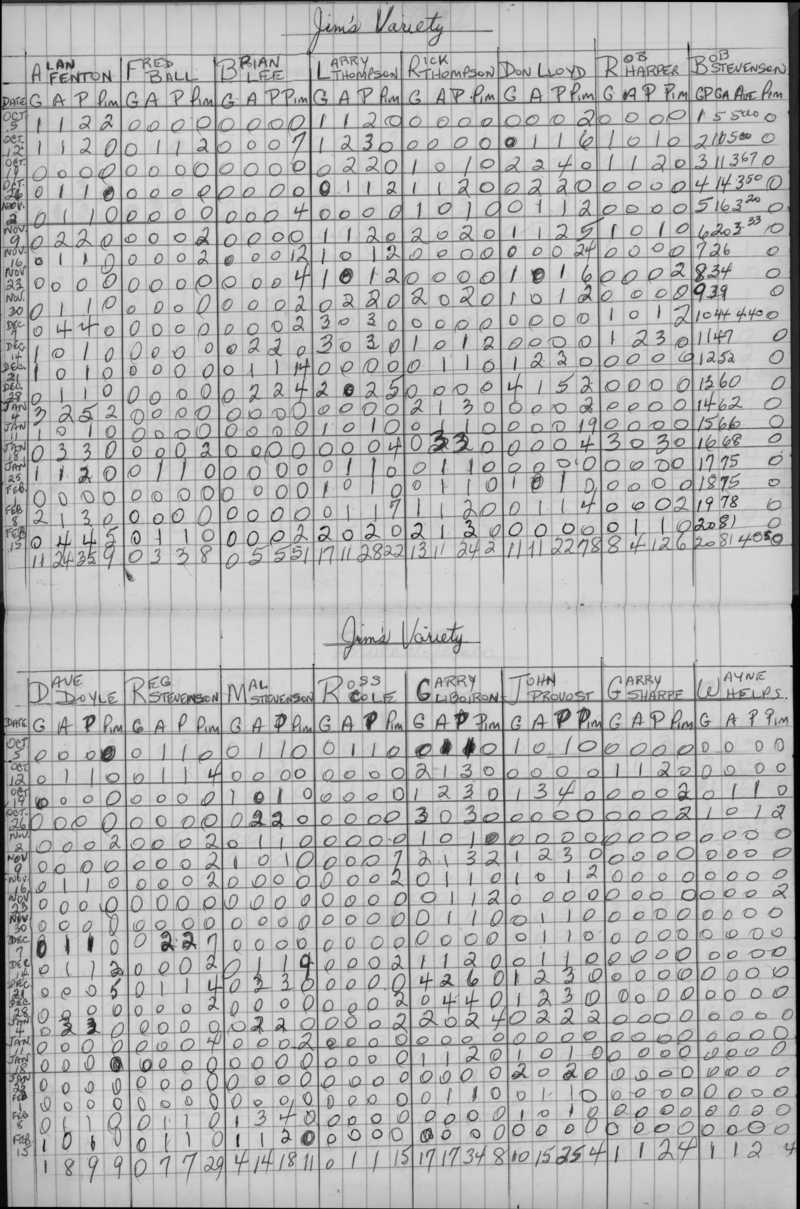 Jim's Variety
ALAN FENTON FRED BALL BRIAN LEE LARRY THOMPSON RICK THOMPSON DON LLOYD ROB HARPER BOB STEVENSON
DATE G A P Pim G A P Pim G A P Pim G A P Pim G A P Pim G A P Pim G A P Pim GP GA AVE Pim
OCT. 5 1 1 2 2 0 0 0 0 0 0 0 0 1 1 2 0 0 0 0 0 0 0 0 2 0 0 0 0 1 5 500 0
OCT. 12 1 1 2 0 0 1 1 2 0 0 0 7 1 2 3 0 0 0 0 0 0 1 1 6 1 0 1 0 2 10 500 0
OCT. 19 0 0 0 0 0 0 0 0 0 0 0 0 0 2 2 0 1 0 1 0 2 2 4 0 1 1 2 0 3 11 367 0
OCT. 26 0 1 1 0 0 0 0 0 0 0 0 0 0 1 1 2 1 1 2 0 0 2 2 0 0 0 0 0 4 14 350 0
NOV. 2 0 1 1 0 0 0 0 0 0 0 0 4 0 0 0 0 1 0 1 0 0 1 1 2 0 0 0 0 5 16 320 0
NOV. 9 0 2 2 0 0 0 0 2 0 0 0 0 1 1 2 0 2 0 2 0 1 1 2 5 1 0 1 0 6 20 333 0
NOV. 16 0 1 1 0 0 0 0 2 0 0 0 12 1 0 1 2 0 0 0 0 0 0 0 24 0 0 0 0 7 26 0
NOV 23 0 0 0 0 0 0 0 0 0 0 0 4 1 0 1 2 0 0 0 0 1 0 1 6 0 0 0 2 8 34 0
NOV. 30 0 1 1 0 0 0 0 0 0 0 0 2 0 2 2 0 2 0 2 0 1 0 1 2 0 0 0 0 9 39 0
DEC 7 0 4 4 0 0 0 0 0 0 0 0 2 3 0 3 0 0 0 0 0 0 0 0 0 1 0 1 2 10 44 440 0
DEC. 14 1 0 1 0 0 0 0 0 0 2 2 0 3 0 3 0 1 0 1 2 0 0 0 0 1 2 3 0 11 47 0
DEC. 21 1 0 1 0 0 0 0 0 0 1 1 14 0 0 0 0 0 1 1 0 1 2 2 0 0 0 0 0 12 52 0
DEC 28 0 1 1 0 0 0 0 0 0 2 2 4 2 0 2 5 0 0 0 0 4 1 5 2 0 0 0 0 13 60 0
JAN 4 3 2 5 2 0 0 0 0 0 0 0 0 0 0 0 0 2 1 3 0 0 0 0 2 0 0 0 0 14 62 0
JAN 11 1 0 1 0 0 0 0 0 0 0 0 0 1 0 1 0 0 1 1 0 0 0 0 19 0 0 0 0 15 66 0
JAN 18 0 3 3 0 0 0 0 2 0 0 0 0 0 0 0 4 0 3 3 0 0 0 0 4 3 0 3 0 16 68 0
JAN 25 1 1 2 0 0 1 1 0 0 0 0 0 0 1 1 0 0 1 1 0 0 0 0 0 0 0 0 0 17 75 0
FEB. 0 0 0 0 0 0 0 0 0 0 0 0 1 0 1 0 0 1 1 0 1 0 1 0 0 0 0 0 18 75 0
FEB. 8 2 1 3 0 0 0 0 0 0 0 0 0 0 1 1 7 1 1 2 0 0 1 1 4 0 0 0 2 19 78 0
FEB 15 0 4 4 5 0 1 1 0 0 0 0 2 2 0 2 0 2 1 3 0 0 0 0 0 0 1 1 0 20 81 0
11 24 35 9 0 3 3 8 0 5 5 51 17 11 28 22 13 11 24 2 11 11 22 78 8 4 12 6 20 81 405 0
Jim's Variety
DAVE DOYLE REG STEVENSON MAL STEVENSON ROSS COLE GARRY LIBOIRON JOHN PROVOST GARRY SHARPE WAYNE HELPS.
DATE G A P Pim G A P Pim G A P Pim G A P Pim G A P Pim G A P Pim G A P Pim G A P Pim
OCT 5 0 0 0 0 0 1 1 0 0 1 1 0 0 1 1 0 0 1 1 0 1 0 1 0 0 0 0 0 0 0 0 0
OCT. 12 0 1 1 0 0 1 1 4 0 0 0 0 0 0 0 0 2 1 3 0 0 0 0 0 1 1 2 0 0 0 0 0
OCT 19 0 0 0 0 0 0 0 0 1 0 1 0 0 0 0 0 1 2 3 0 1 3 4 0 0 0 0 2 0 1 1 0
OCT. 26 0 0 0 0 0 0 0 0 0 2 2 0 0 0 0 0 3 0 3 0 0 0 0 0 0 0 0 2 1 0 1 2
NOV. 2 0 0 0 2 0 0 0 2 0 1 1 0 0 0 0 0 1 0 1 0 0 0 0 0 0 0 0 0 0 0 0 0
NOV 9 0 0 0 0 0 0 0 2 1 0 1 0 0 0 0 7 2 1 3 2 1 2 3 0 0 0 0 0 0 0 0 0
NOV. 16 0 1 1 0 0 0 0 2 0 0 0 0 0 0 0 2 0 1 1 0 1 0 1 2 0 0 0 0 0 0 0 0
NOV 23 0 0 0 0 0 0 0 0 0 0 0 0 0 0 0 0 0 1 1 2 0 0 0 0 0 0 0 0 0 0 0 2
NOV 30 0 0 0 0 0 0 0 0 0 0 0 0 0 0 0 0 0 1 1 0 0 1 1 0 0 0 0 0 0 0 0 0
DEC 7 0 1 1 0 0 2 2 7 0 0 0 0 0 0 0 0 0 0 0 0 0 1 1 0 0 0 0 0 0 0 0 0
DEC 14 0 1 1 2 0 0 0 2 0 1 1 9 0 0 0 2 1 1 2 0 0 1 1 0 0 0 0 0 0 0 0 0
DEC. 21 0 0 0 5 0 1 1 4 0 3 3 0 0 0 0 0 4 2 6 0 1 2 3 0 0 0 0 0 0 0 0 0
DEC 28 0 0 0 0 0 0 0 2 0 0 0 0 0 0 0 2 0 4 4 0 1 2 3 0 0 0 0 0 0 0 0 0
JAN 4 0 3 3 0 0 0 0 0 0 2 2 0 0 0 0 2 2 0 2 4 0 2 2 2 0 0 0 0 0 0 0 0
JAN 11 0 0 0 0 0 0 0 4 0 0 0 2 0 0 0 0 0 0 0 0 0 0 0 0 0 0 0 0 0 0 0 0
JAN 18 0 0 0 0 0 0 0 0 0 0 0 0 0 0 0 0 1 1 2 0 1 0 1 0 0 0 0 0 0 0 0 0
JAN 0 0 0 0 0 0 0 0 0 0 0 0 0 0 0 0 0 0 0 0 2 0 2 0 0 0 0 0 0 0 0 0
FEB 0 0 0 0 0 0 0 0 0 0 0 0 0 0 0 0 0 1 1 0 0 1 1 0 0 0 0 0 0 0 0 0
FEB 8 0 1 1 0 0 1 1 0 1 3 4 0 0 0 0 0 0 0 0 0 1 0 1 0 0 0 0 0 0 0 0 0
FEB. 15 1 0 1 0 0 1 1 0 1 1 2 0 0 0 0 0 0 0 0 0 0 0 0 0 0 0 0 0 0 0 0 0
1 8 9 9 0 7 7 29 4 14 18 11 0 1 1 15 17 17 34 8 10 15 25 4 1 1 2 4 1 1 2 4